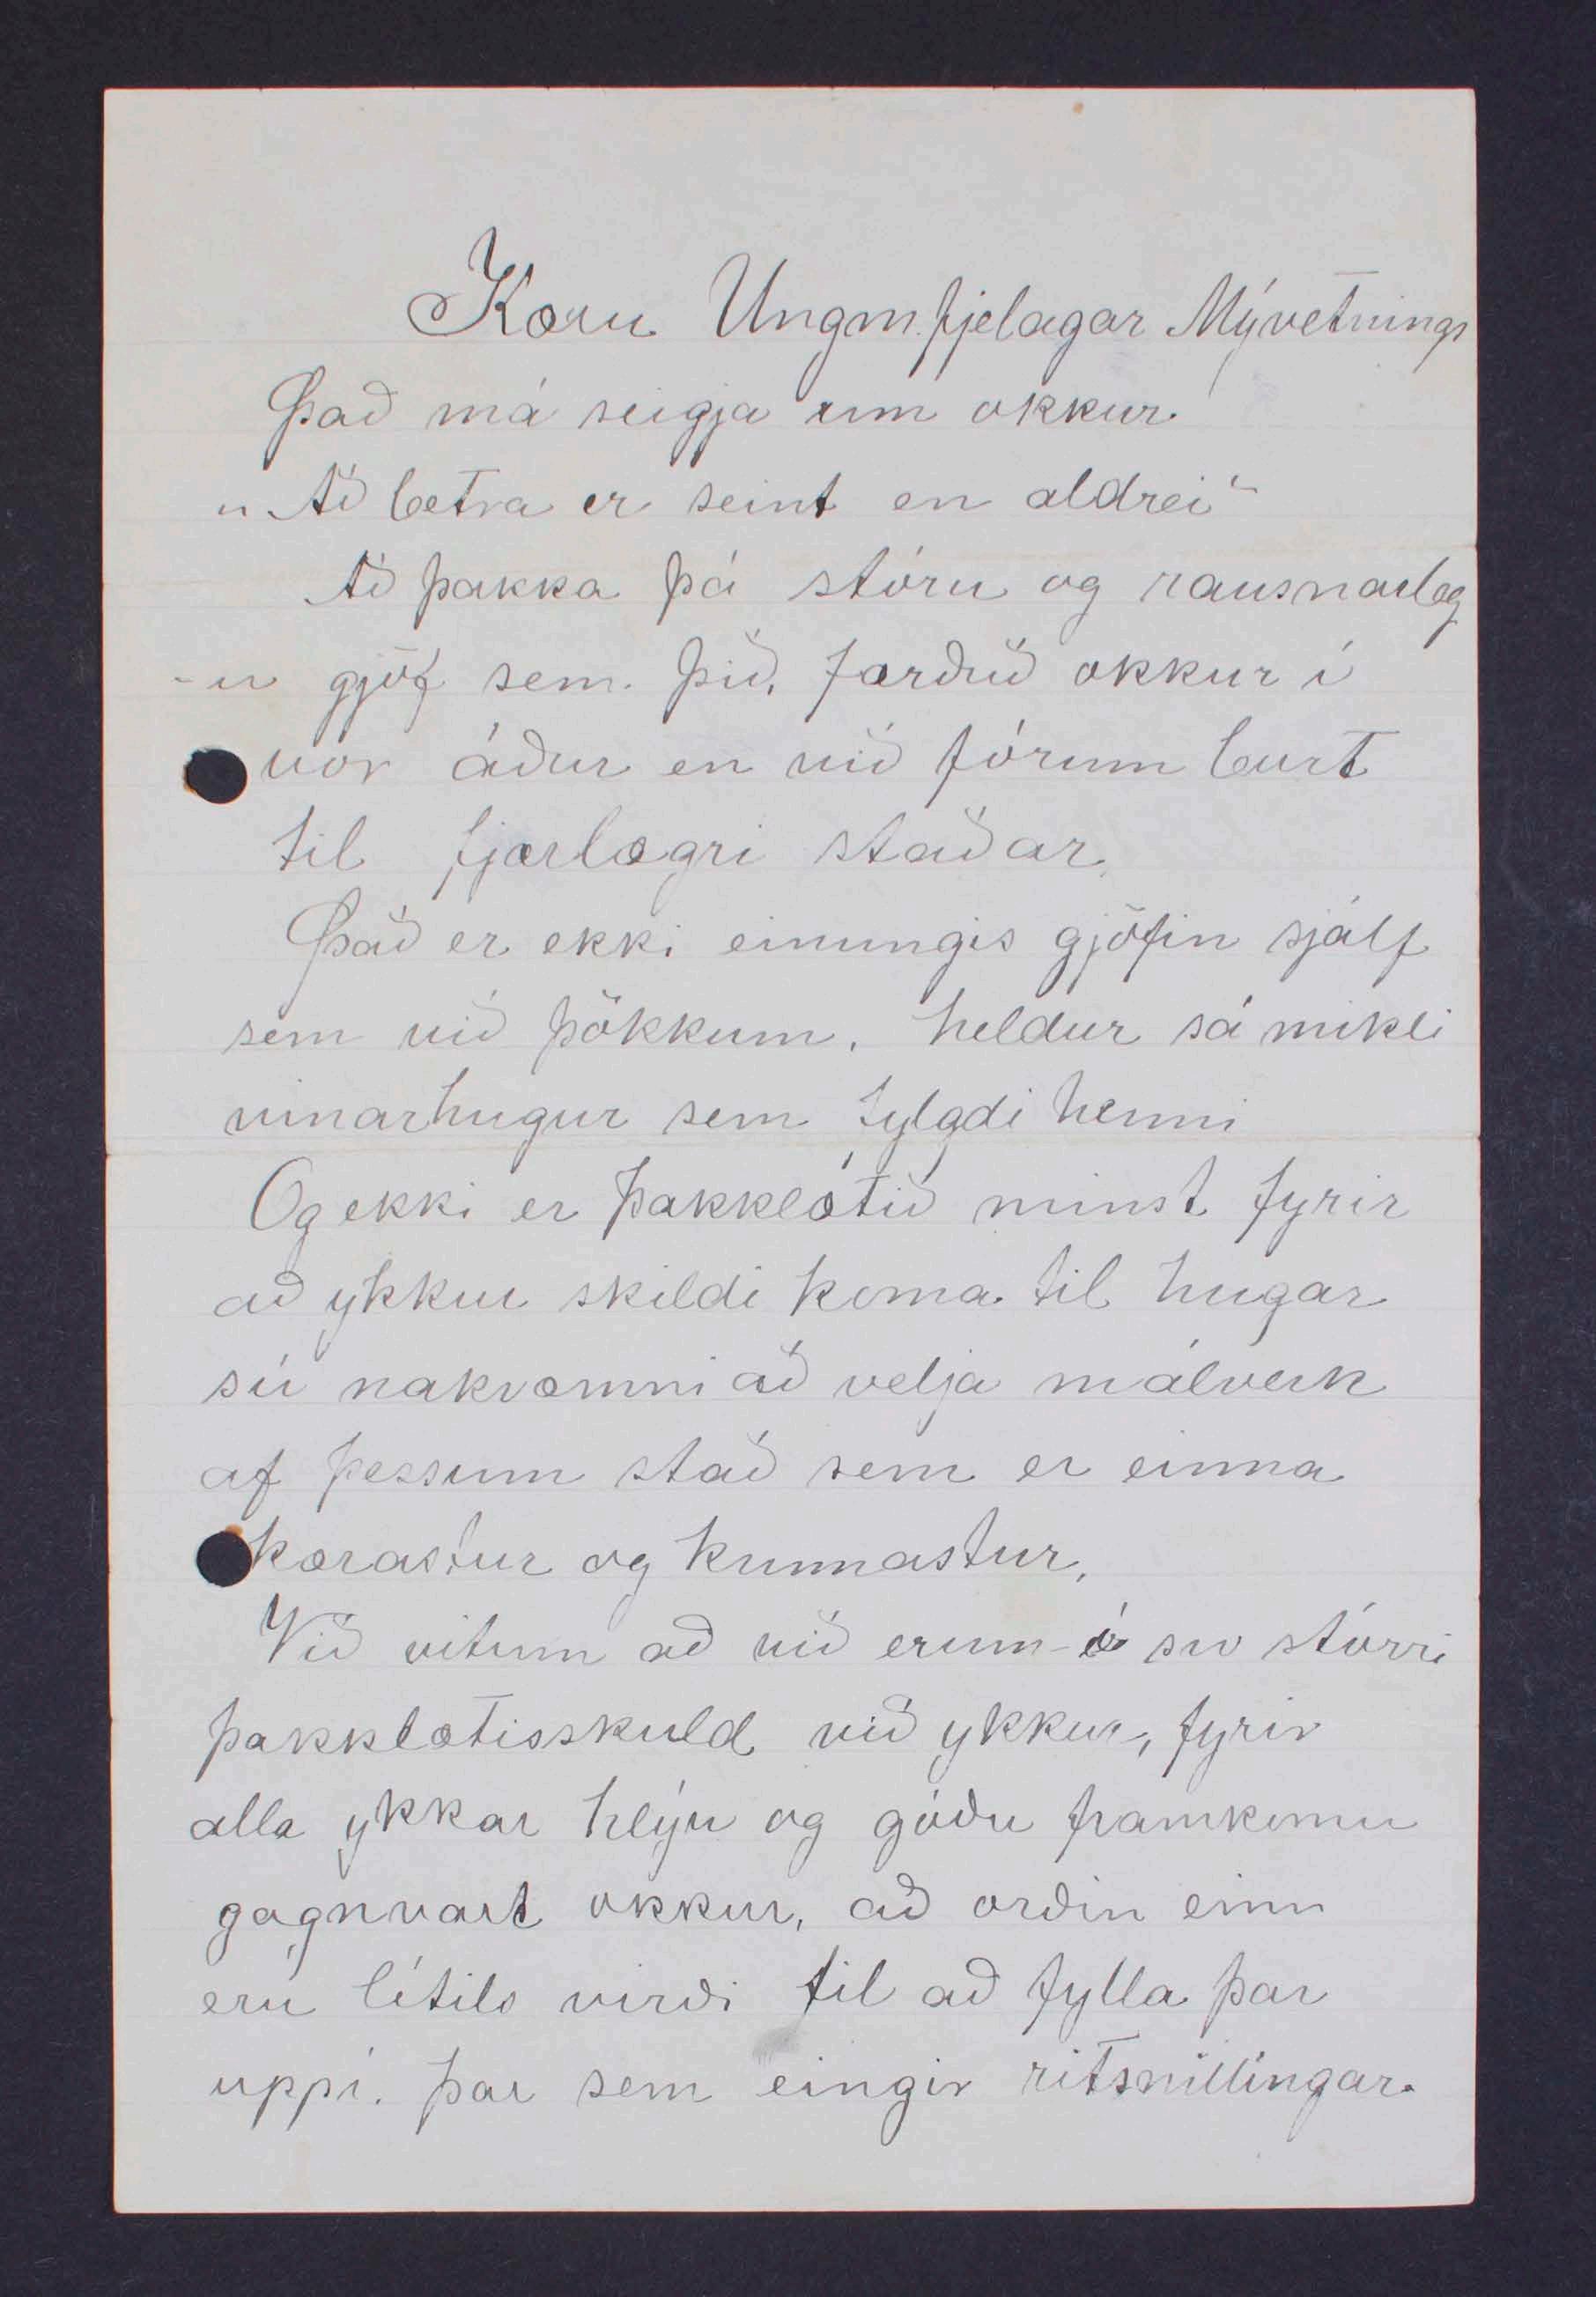 Kæru Ungm.fjelagar Mývetnings
Það má seigja um okkur.
„Að betra er seint en aldrei“
Að þakka þá stóru og rausnarleg
-u gjöf sem þið, færðuð okkur í
vor áður en við fórum burt
til fjærlægri staðar.
Það er ekki einungis gjöfin sjálf
sem við þökkum, heldur sá mikli
vinarhugur sem fylgdi henni
Og ekki er þakklætið minst fyrir
að ykkur skildi koma til hugar
sú nakvæmni að velja málverk
af þessum stað sem er einna
kærastur og kunnastur,
Við vitum að við erum í svo stórri
þakklætisskuld við ykkur, fyrir
alla ykkar hlýu og góðu framkomu
gagnvart okkur, að orðin einn
eru lítils virði til að fylla þar
uppí. þar sem eingir ritsnillingar